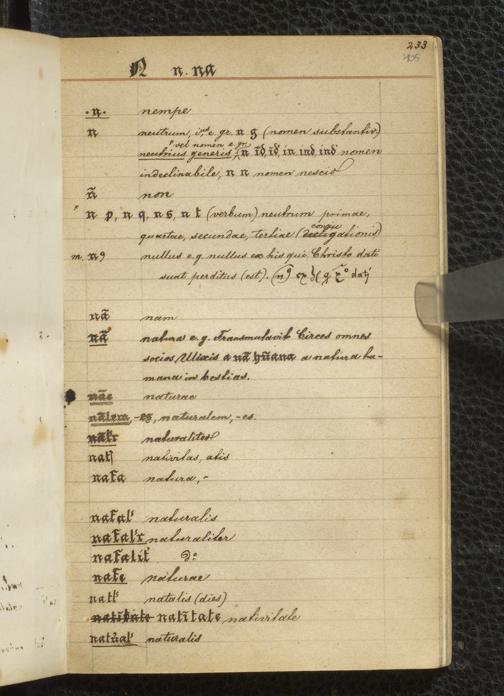 233
N n. na
.n. nempe
n neutrum, e. gr. n g (nomen substantiv)
vel nomen e. gr.
neutrius generis, n id, id, in ind, ind nomen
indeclinabile, n n nomen nescio
ñ non
n p, n q, n s, n t (verbum) neutrum primae,
conju
quartae, secundae, tertiae (gationis)
m. n9 nullus e.g. nullus ex his qui Christo dati
sunt perditus (est).
nā nam
nā natura e.g. Transmutavit Circes omnes
socios Ulixis a nā hūana a natura hu-
mana in bestias.
nāe naturae
nālem, -es, naturalem, -es.
nālr naturaliter
nat nativitas, atis
nata natura, -
natal naturalis
natalr naturaliter
natalit Do
nate naturae
natl natalis (dies)
natitate natitate nativitate
natual naturalis